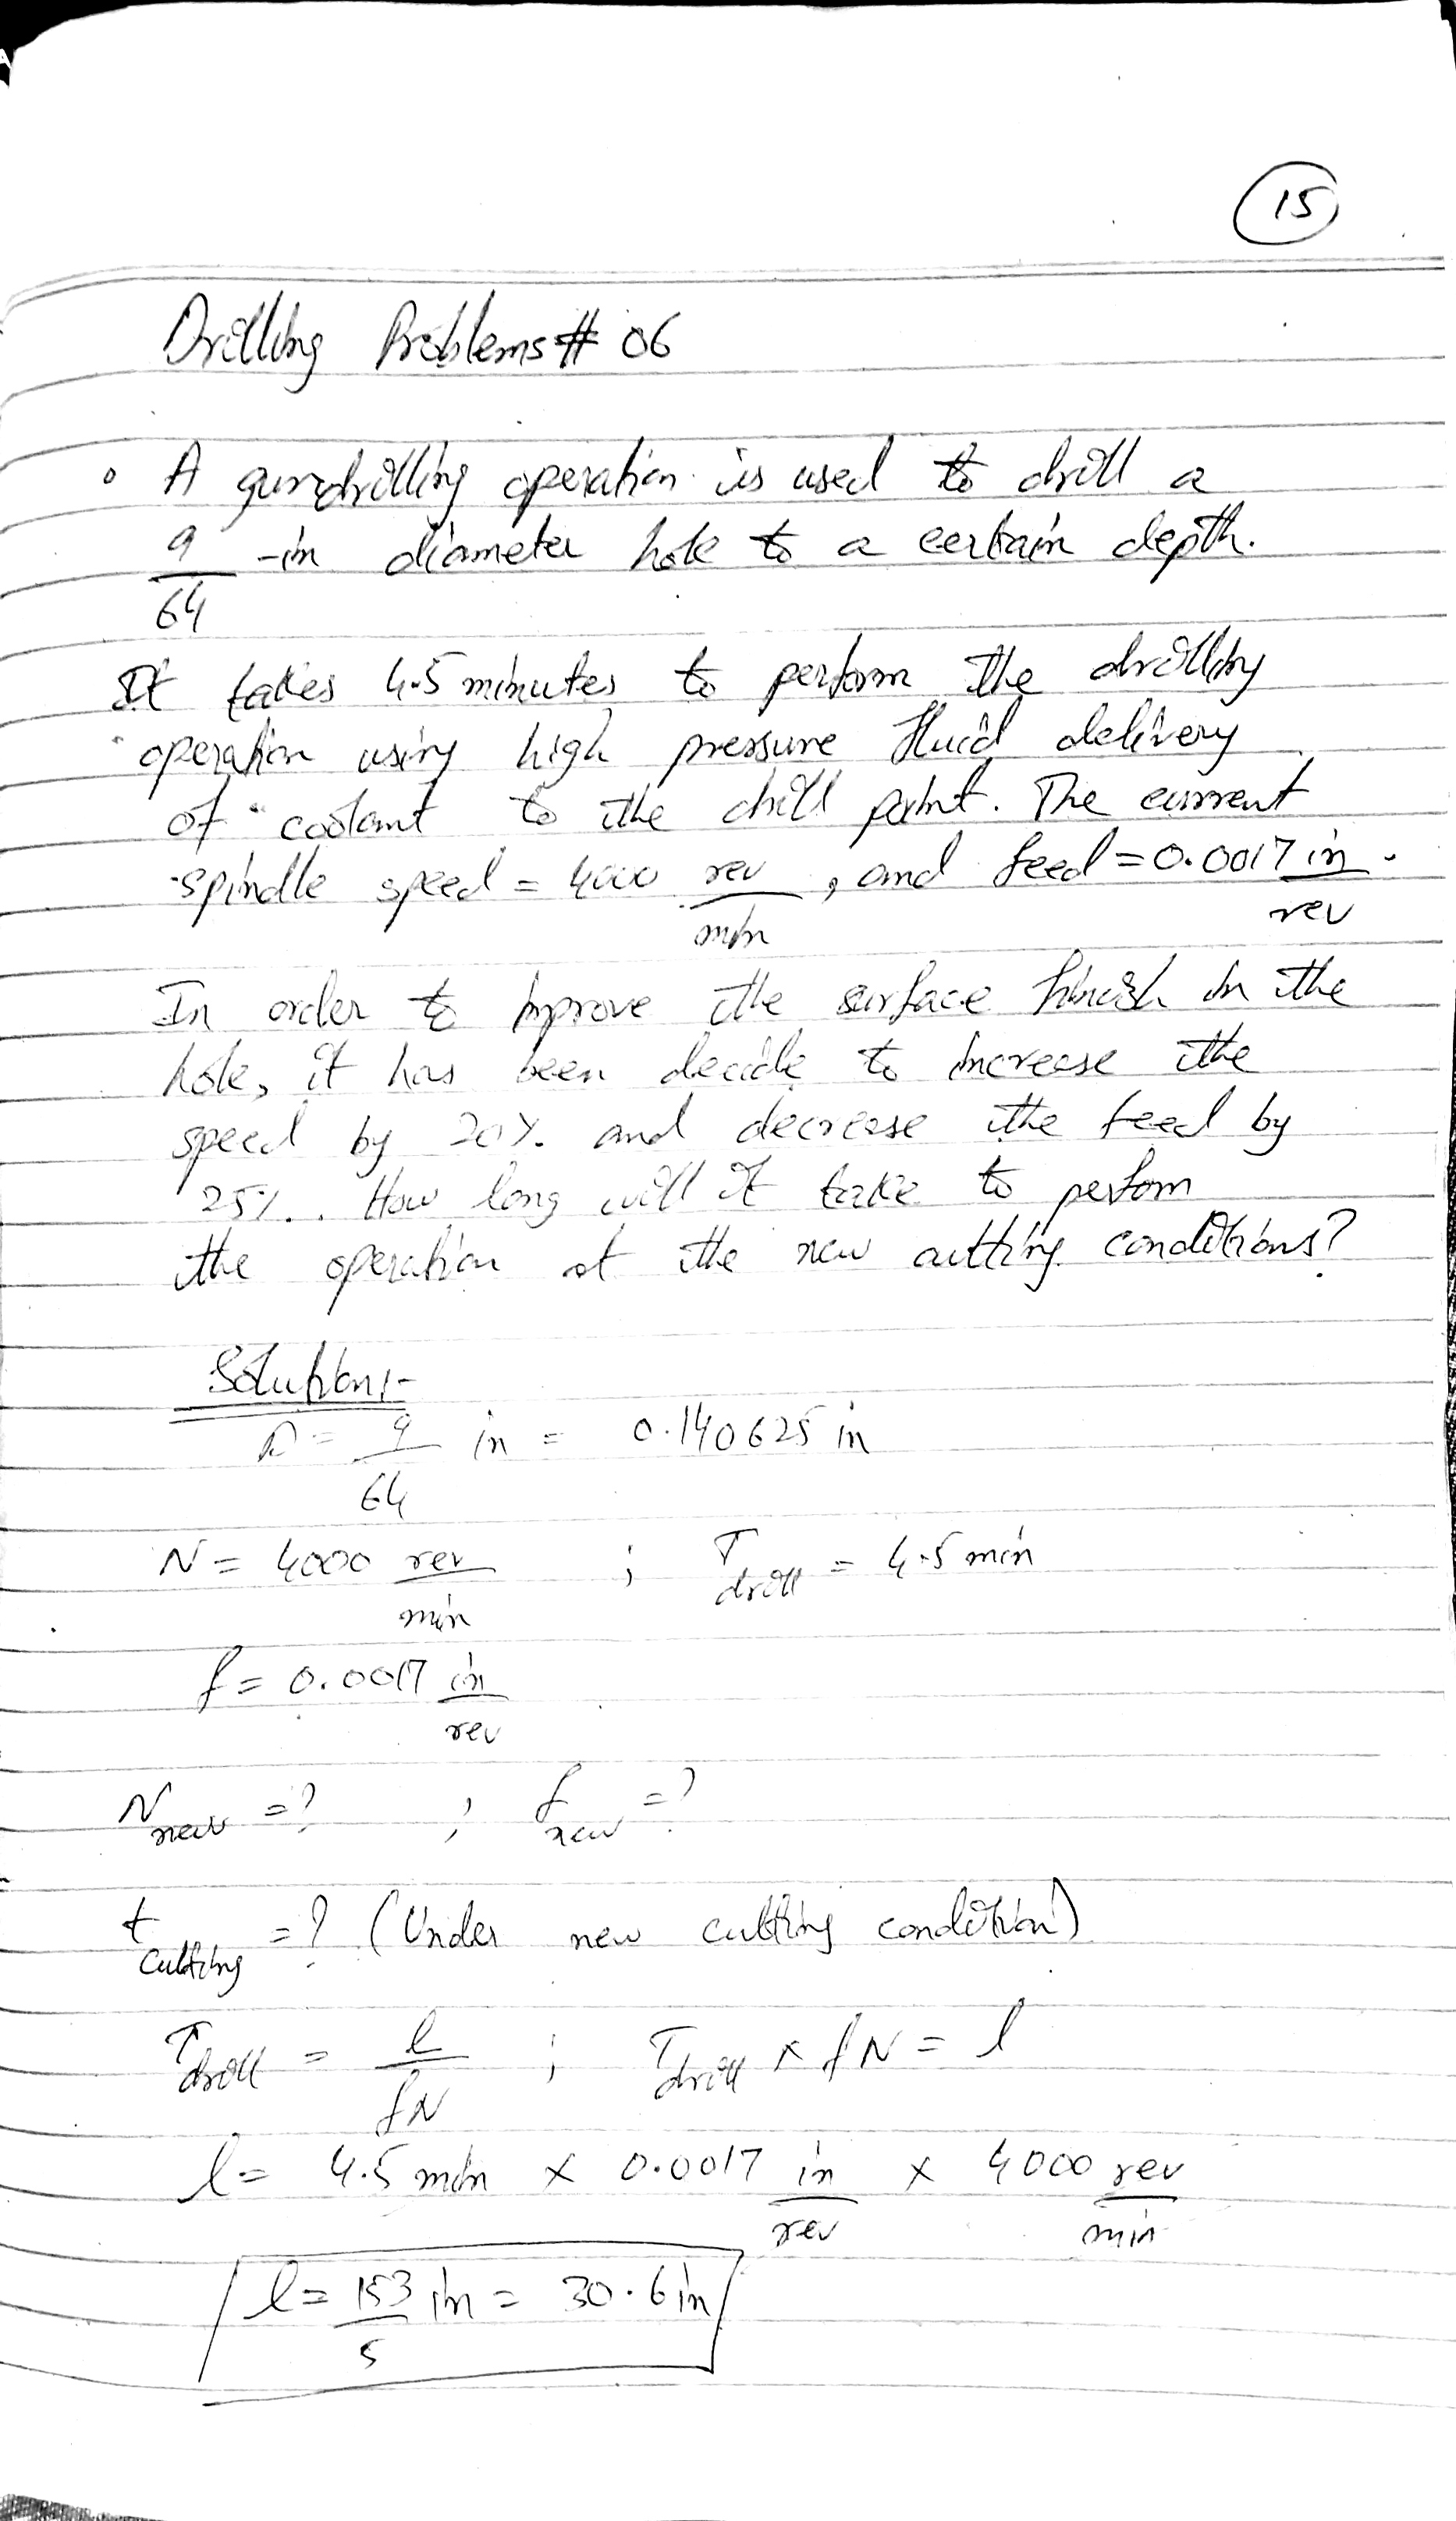 15
Drilling Problems # 06
• A gundrilling operation is used to drill a
9/64 -in diameter hole to a certain depth.
It takes 4.5 minutes to perform the drilling
operation using high pressure fluid delivery
of coolant to the drill point. The current
spindle speed = 4000 rev/min, and feed = 0.0017 in/rev.
In order to improve the surface finish in the
hole, it has been decide to increase the
speed by 20% and decrease the feed by
25%. How long will it take to perfom
the operation at the new cutting conditions?
Solution:-
D = 9/64 in = 0.140625 in
N = 4000 rev/min ; T drill = 4.5 min
f = 0.0017 in/rev
N new = ? ; f new = ?
t cutting = ? (Under new cutting condition)
T drill = l/fN ; T drill × fN = l
l = 4.5 min × 0.0017 in/rev × 4000 rev/min
l = 153/5 in = 30.6 in